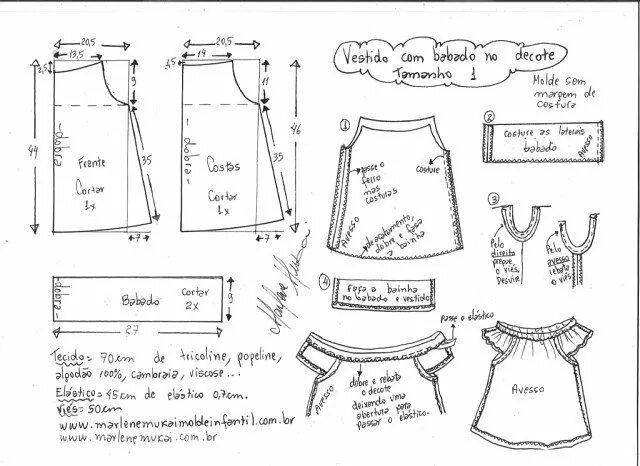 Vestido com babado no decote
Tamanho 1
Molde sem
margem de
costura
20,5
13,5
2,5
9
44
35
dobra
Frente
Cortar
1x
7
20,5
14
1,5
11
46
35
dobra
Costas
Cortar
1x
7
dobra
Babado
Cortar
2x
9
27
Tecido = 70cm de tricoline, popeline,
algodão 100%, cambraia, viscose...
Elástico = 45cm de elástico 0,7cm.
viés = 50cm
www.marlenemukaimoldeinfantil.com.br
www.marlenemukai.com.br
1
passe o
ferro
nas
costuras
costure
Avesso
dobre e faça
a bainha
2
costure as laterais
babado
Avesso
3
Pelo
direito
pregue
o viés.
Desvire
Pelo
avesso
rebata
o viés
4
faça a bainha
no babado e vestido
passe o elástico
Avesso
dobre e rebata
o decote
deixando uma
abertura para
passar o elástico.
Avesso